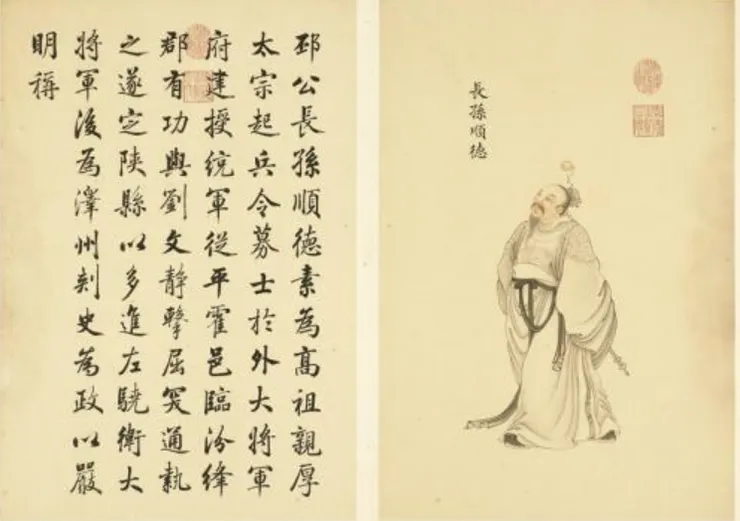 邳公長孫順德素為高祖親厚
太宗起兵令募士於外大將軍
府建授統軍從平霍邑臨汾絳
郡有功與劉文靜擊屈突通執
之遂定陝縣以多進左驍衛大
將軍後為澤州刺史為政以嚴
明稱
長孫順德